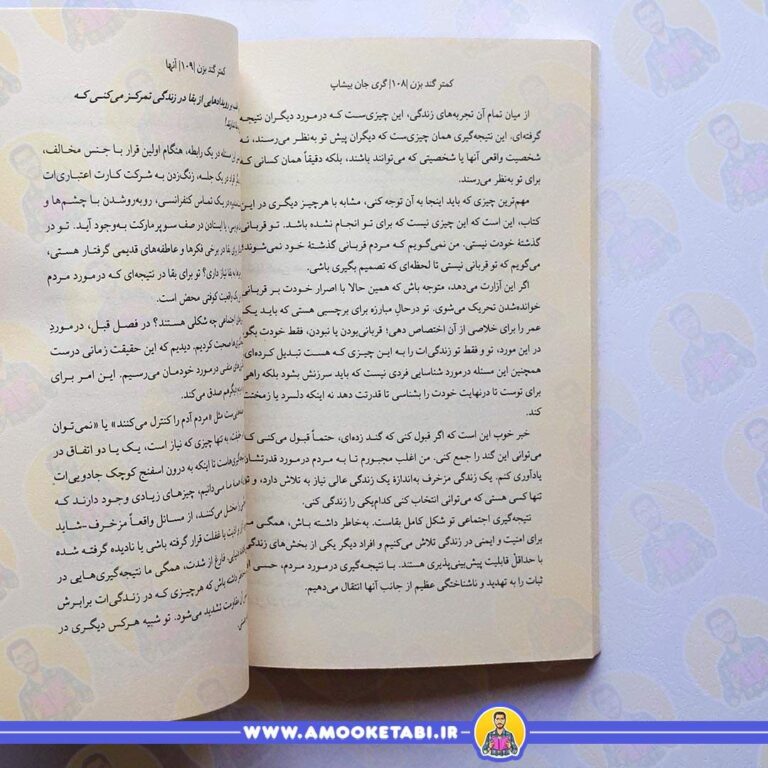 کمتر گند بزن |۱۰۸| گری جان بیشاپ
از میان تمام آن تجربه‌های زندگی، این چیزی‌ست که درمورد دیگران نتیجه
گرفته‌ای. این نتیجه‌گیری همان چیزی‌ست که دیگران پیش تو به‌نظر می‌رسند، نه
شخصیت واقعی آنها یا شخصیتی که می‌توانند باشند، بلکه دقیقاً همان کسانی که
برای تو به‌نظر می‌رسند.
مهم‌ترین چیزی که باید اینجا به آن توجه کنی، مشابه با هرچیز دیگری در این
کتاب، این است که این چیزی نیست که برای تو انجام نشده باشد. تو قربانی
گذشتهٔ خودت نیستی. من نمی‌گویم که مردم قربانی گذشتهٔ خود نمی‌شوند
می‌گویم که تو قربانی نیستی تا لحظه‌ای که تصمیم بگیری باشی.
اگر این آزارت می‌دهد، متوجه باش که همین حالا با اصرار خودت بر قربانی
خوانده‌شدن تحریک می‌شوی. تو درحالِ مبارزه برای برچسبی هستی که باید یک
عمر را برای خلاصی از آن اختصاص دهی؛ قربانی‌بودن یا نبودن، فقط خودت بگو
در این مورد، تو و فقط تو زندگی‌ات را به این چیزی که هست تبدیل کرده‌ای.
همچنین این مسئله درمورد شناسایی فردی نیست که باید سرزنش بشود بلکه راهی
برای توست تا درنهایت خودت را بشناسی تا قدرتت دهد نه اینکه دلسرد یا زمختت
کند.
خبر خوب این است که اگر قبول کنی که گند زده‌ای، حتماً قبول می‌کنی که
می‌توانی این گند را جمع کنی. من اغلب مجبورم تا به مردم درمورد قدرتشان
یادآوری کنم. یک زندگی مزخرف به‌اندازهٔ یک زندگی عالی نیاز به تلاش دارد، و تو
تنها کسی هستی که می‌توانی انتخاب کنی کدام‌یکی را زندگی کنی.
نتیجه‌گیری اجتماعی تو شکل کامل بقاست. به‌خاطر داشته باش، همگی ما
برای امنیت و ایمنی در زندگی تلاش می‌کنیم و افراد دیگر یکی از بخش‌های زندگی
با حداقلْ قابلیت پیش‌بینی‌پذیری هستند. با نتیجه‌گیری درمورد مردم، حسی از
ثبات را به تهدید و ناشناختگی عظیم از جانب آنها انتقال می‌دهیم.
کمتر گند بزن |۱۰۹| آنها
رویدادهایی از بقا در زندگی تمرکز می‌کنی که
مسئله در یک رابطه، هنگام اولین قرار با جنس مخالف،
افراد در یک جلسه، زنگ‌زدن به شرکت کارت اعتباری‌ات
در یک تماس کنفرانسی، روبه‌روشدن با چشم‌ها و
یا ایستادن در صف سوپرمارکت به‌وجود آید. تو در
برای بقا در برخی فکرها و عاطفه‌های قدیمی گرفتار هستی،
به بقا نیاز داری؟ تو برای بقا در نتیجه‌ای که درمورد مردم
یک واقعیت کوفتی محض است.
اجتماعی چه شکلی هستند؟ در فصل قبل، درمورد
صحبت کردیم. دیدیم که این حقیقت زمانی درست
منفی درمورد خودمان می‌رسیم. این امر برای
هم صدق می‌کند.
مثل «مردم آدم را کنترل می‌کنند» یا «نمی‌توان
به تنها چیزی که نیاز است، یک یا دو اتفاق در
تا اینکه به درون اسفنج کوچک جادویی‌ات
می‌دانیم، چیزهای زیادی وجود دارند که
می‌کنند، از مسائل واقعاً مزخرف -شاید
یا غفلت قرار گرفته باشی یا نادیده گرفته شده
فارغ از شدت، همگی ما نتیجه‌گیری‌هایی در
داشته باش که هرچیزی که در زندگی‌ات برابرش
مقاومت تشدید می‌شود. تو شبیه هرکس دیگری در
WWW.AMOOKETABI.IR